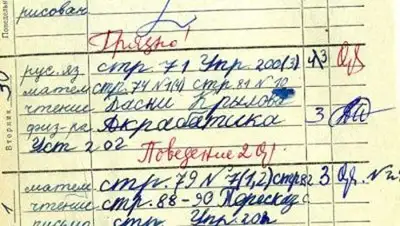 Понедель
рисован
Грязно!
Вторник 30
рус. яз. стр. 71 Упр. 200(3) 3
матем стр. 74 N 1(4) стр. 81 N 10
чтение Басни Крылова
физ-ра Акрабатика 3
Уст 202
Поведение 2
1
матем стр. 79 N 7(1,2) стр 82 3
чтение стр. 88-90 Пересказ
письмо стр. Упр. 20